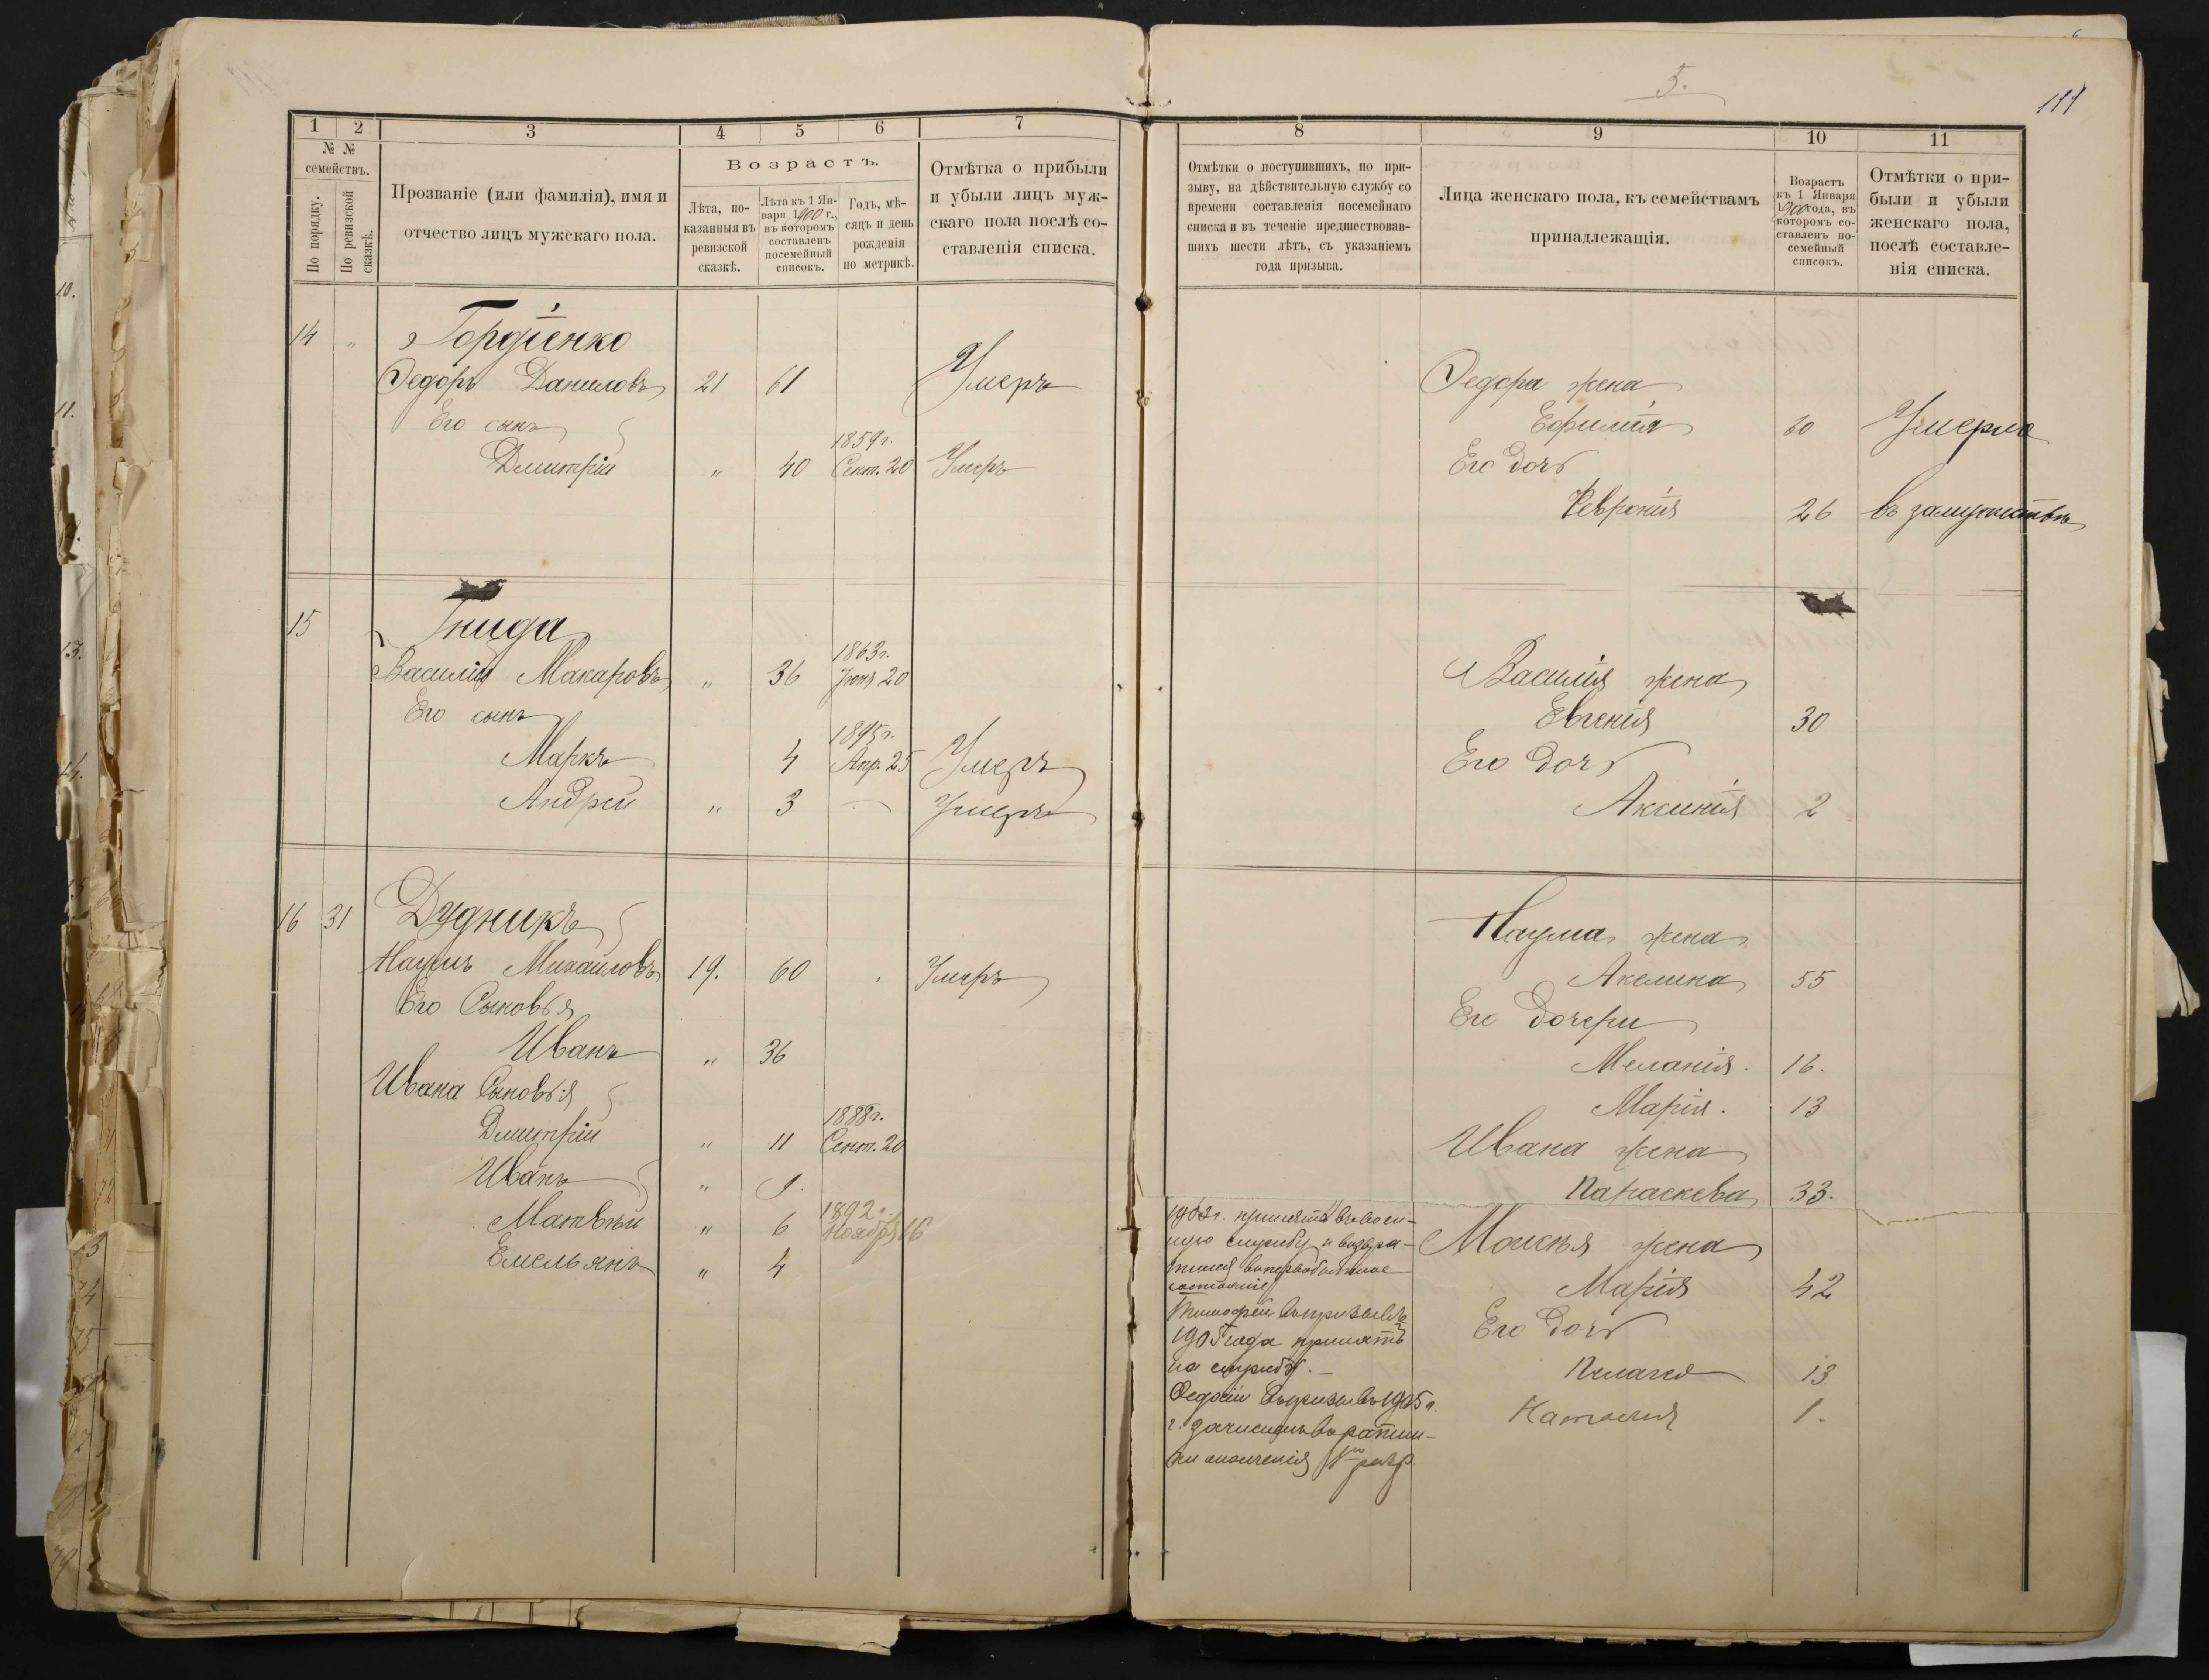 5.
1
2
3
4
5
6
7
№ №
семействъ.
По порядку.
По ревизской
сказкѣ.
Прозваніе (или фамилія), имя и
отчество лицъ мужскаго пола.
Возрастъ.
Лѣта, по-
казанныя въ
ревизской
сказкѣ.
Лѣта къ 1 Ян-
варя 1900 г.,
въ которомъ
составленъ
посемейный
списокъ.
Годъ, мѣ-
сяцъ и день
рожденія
по метрикѣ.
Отмѣтка о прибыли
и убыли лицъ муж-
скаго пола послѣ со-
ставленія списка.
14 " Гордіенко
Федоръ Даниловъ 21 61 Умеръ
Его сынъ
1859 г.
Дмитрій " 40 Сент. 20 Умеръ
15 Гнида
1863 г.
Василій Макаровъ " 36 20
Его сынъ
1895 г.
Маркъ 4 Апр. 25 Умеръ
Андрей " 3 — Умеръ
16 31 Дудникъ
Наумъ Михаиловъ 19. 60 Умеръ
Его Сыновья
Иванъ " 36
Ивана Сыновья
1888 г.
Дмитрій " 11 Сент. 20
Иванъ " 9.
1892 г.
Матвѣй " 6 Ноября 16
Емельянъ " 4
8
9
10
11
Отмѣтки о поступившихъ, по при-
зыву, на дѣйствительную службу со
времени составленія посемейнаго
списка и въ теченіе предшествовав-
шихъ шести лѣтъ, съ указаніемъ
года призыва.
Лица женскаго пола, къ семействамъ
принадлежащія.
Возрастъ
къ 1 Января
1900 года, въ
которомъ со-
ставленъ по-
семейный
списокъ.
Отмѣтки о при-
были и убыли
женскаго пола,
послѣ составле-
нія списка.
Федора жена
Ефимія 60 Умерла
Его дочь
Февронія 26 въ замужествѣ
Василія жена
Евгенія 30
Его дочь
Аксинія 2
Наума жена
Акелина 55
Его дочери
Меланія. 16.
Марія. 13
Ивана жена
Параскева 33.
1903 г. принятъ въ воен-
ную службу и возвра-
тился въ первобытное
состояніе
Тимофей въ призывѣ
1905 года принятъ
на службу. —
Федосій въ призывъ 1905 г.
г. зачисленъ въ ратни-
ки ополченія 1го разр.
Моисѣя жена
Марія 42
Его дочь
Пелагея 13
Наталія 1.